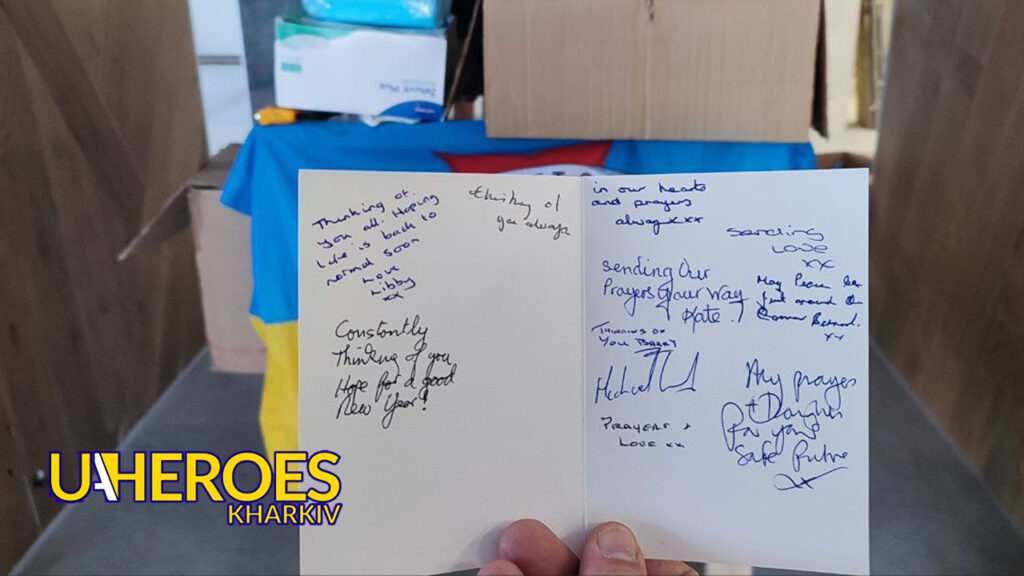 Thinking of
you all. Hoping
Life is back to
normal soon
Love
Libby
xx
thinking of
you always
Constantly
Thinking of you
Hope for a good
New Year!
in our hearts
and prayers
always xxx
Sending
Love
xx
Sending Our
Prayers Your Way
Kate.
May Peace be
just around the
Corner
xx
THINKING OF
YOU
Michael
PRAYERS +
LOVE xx
My prayers
+ Thoughts
For your
Safe future
x
UAHEROES
KHARKIV